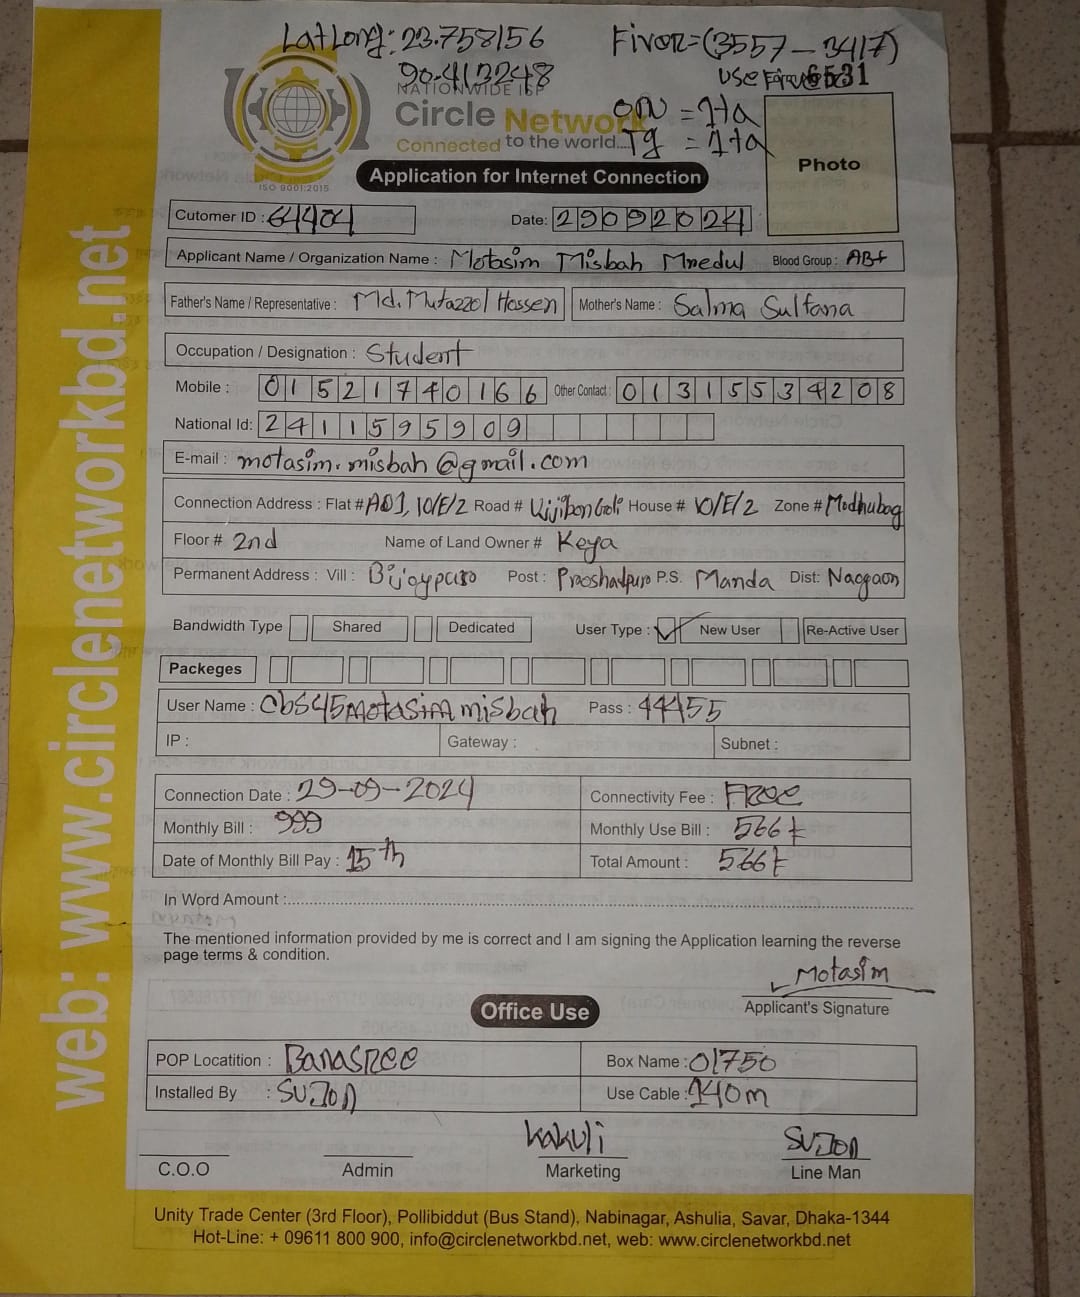 LatLong: 23.758156 Fiver=(3557-3417)
90.413248 USE 6531
NATIONWIDE ISP
Circle Network ONU = 1ta
Connected to the world... Tg = 1ta
ISO 9001:2015
Photo
Application for Internet Connection
Cutomer ID : 64404 Date: 29092024
Applicant Name / Organization Name : Motasim Misbah Mredul Blood Group : AB+
Father's Name / Representative : Md. Mutazzol Hossen Mother's Name : Salma Sultana
Occupation / Designation : Student
Mobile : 01521740166 Other Contact : 01315534208
National Id: 2411595909
E-mail : motasim.misbah@gmail.com
Connection Address : Flat # A01, 10/E/2 Road # House # 10/E/2 Zone # Modhubag
Floor # 2nd Name of Land Owner # Keya
Permanent Address : Vill : Bijoypuro Post : Prashadpuro P.S. Manda Dist: Naogaon
Bandwidth Type Shared Dedicated User Type : ✓ New User Re-Active User
Packeges
User Name : cbs45motasimmisbah Pass : 44455
IP : Gateway : Subnet :
Connection Date : 29-09-2024 Connectivity Fee : Free
Monthly Bill : 999 Monthly Use Bill : 566
Date of Monthly Bill Pay : 15th Total Amount : 566
In Word Amount :
The mentioned information provided by me is correct and I am signing the Application learning the reverse
page terms & condition.
Motasim
Applicant's Signature
Office Use
POP Locatition : Banasree Box Name : 01750
Installed By : SUJON Use Cable : 140m
Kakuli SUJON
C.O.O Admin Marketing Line Man
Unity Trade Center (3rd Floor), Pollibiddut (Bus Stand), Nabinagar, Ashulia, Savar, Dhaka-1344
Hot-Line: + 09611 800 900, info@circlenetworkbd.net, web: www.circlenetworkbd.net
web: www.circlenetworkbd.net